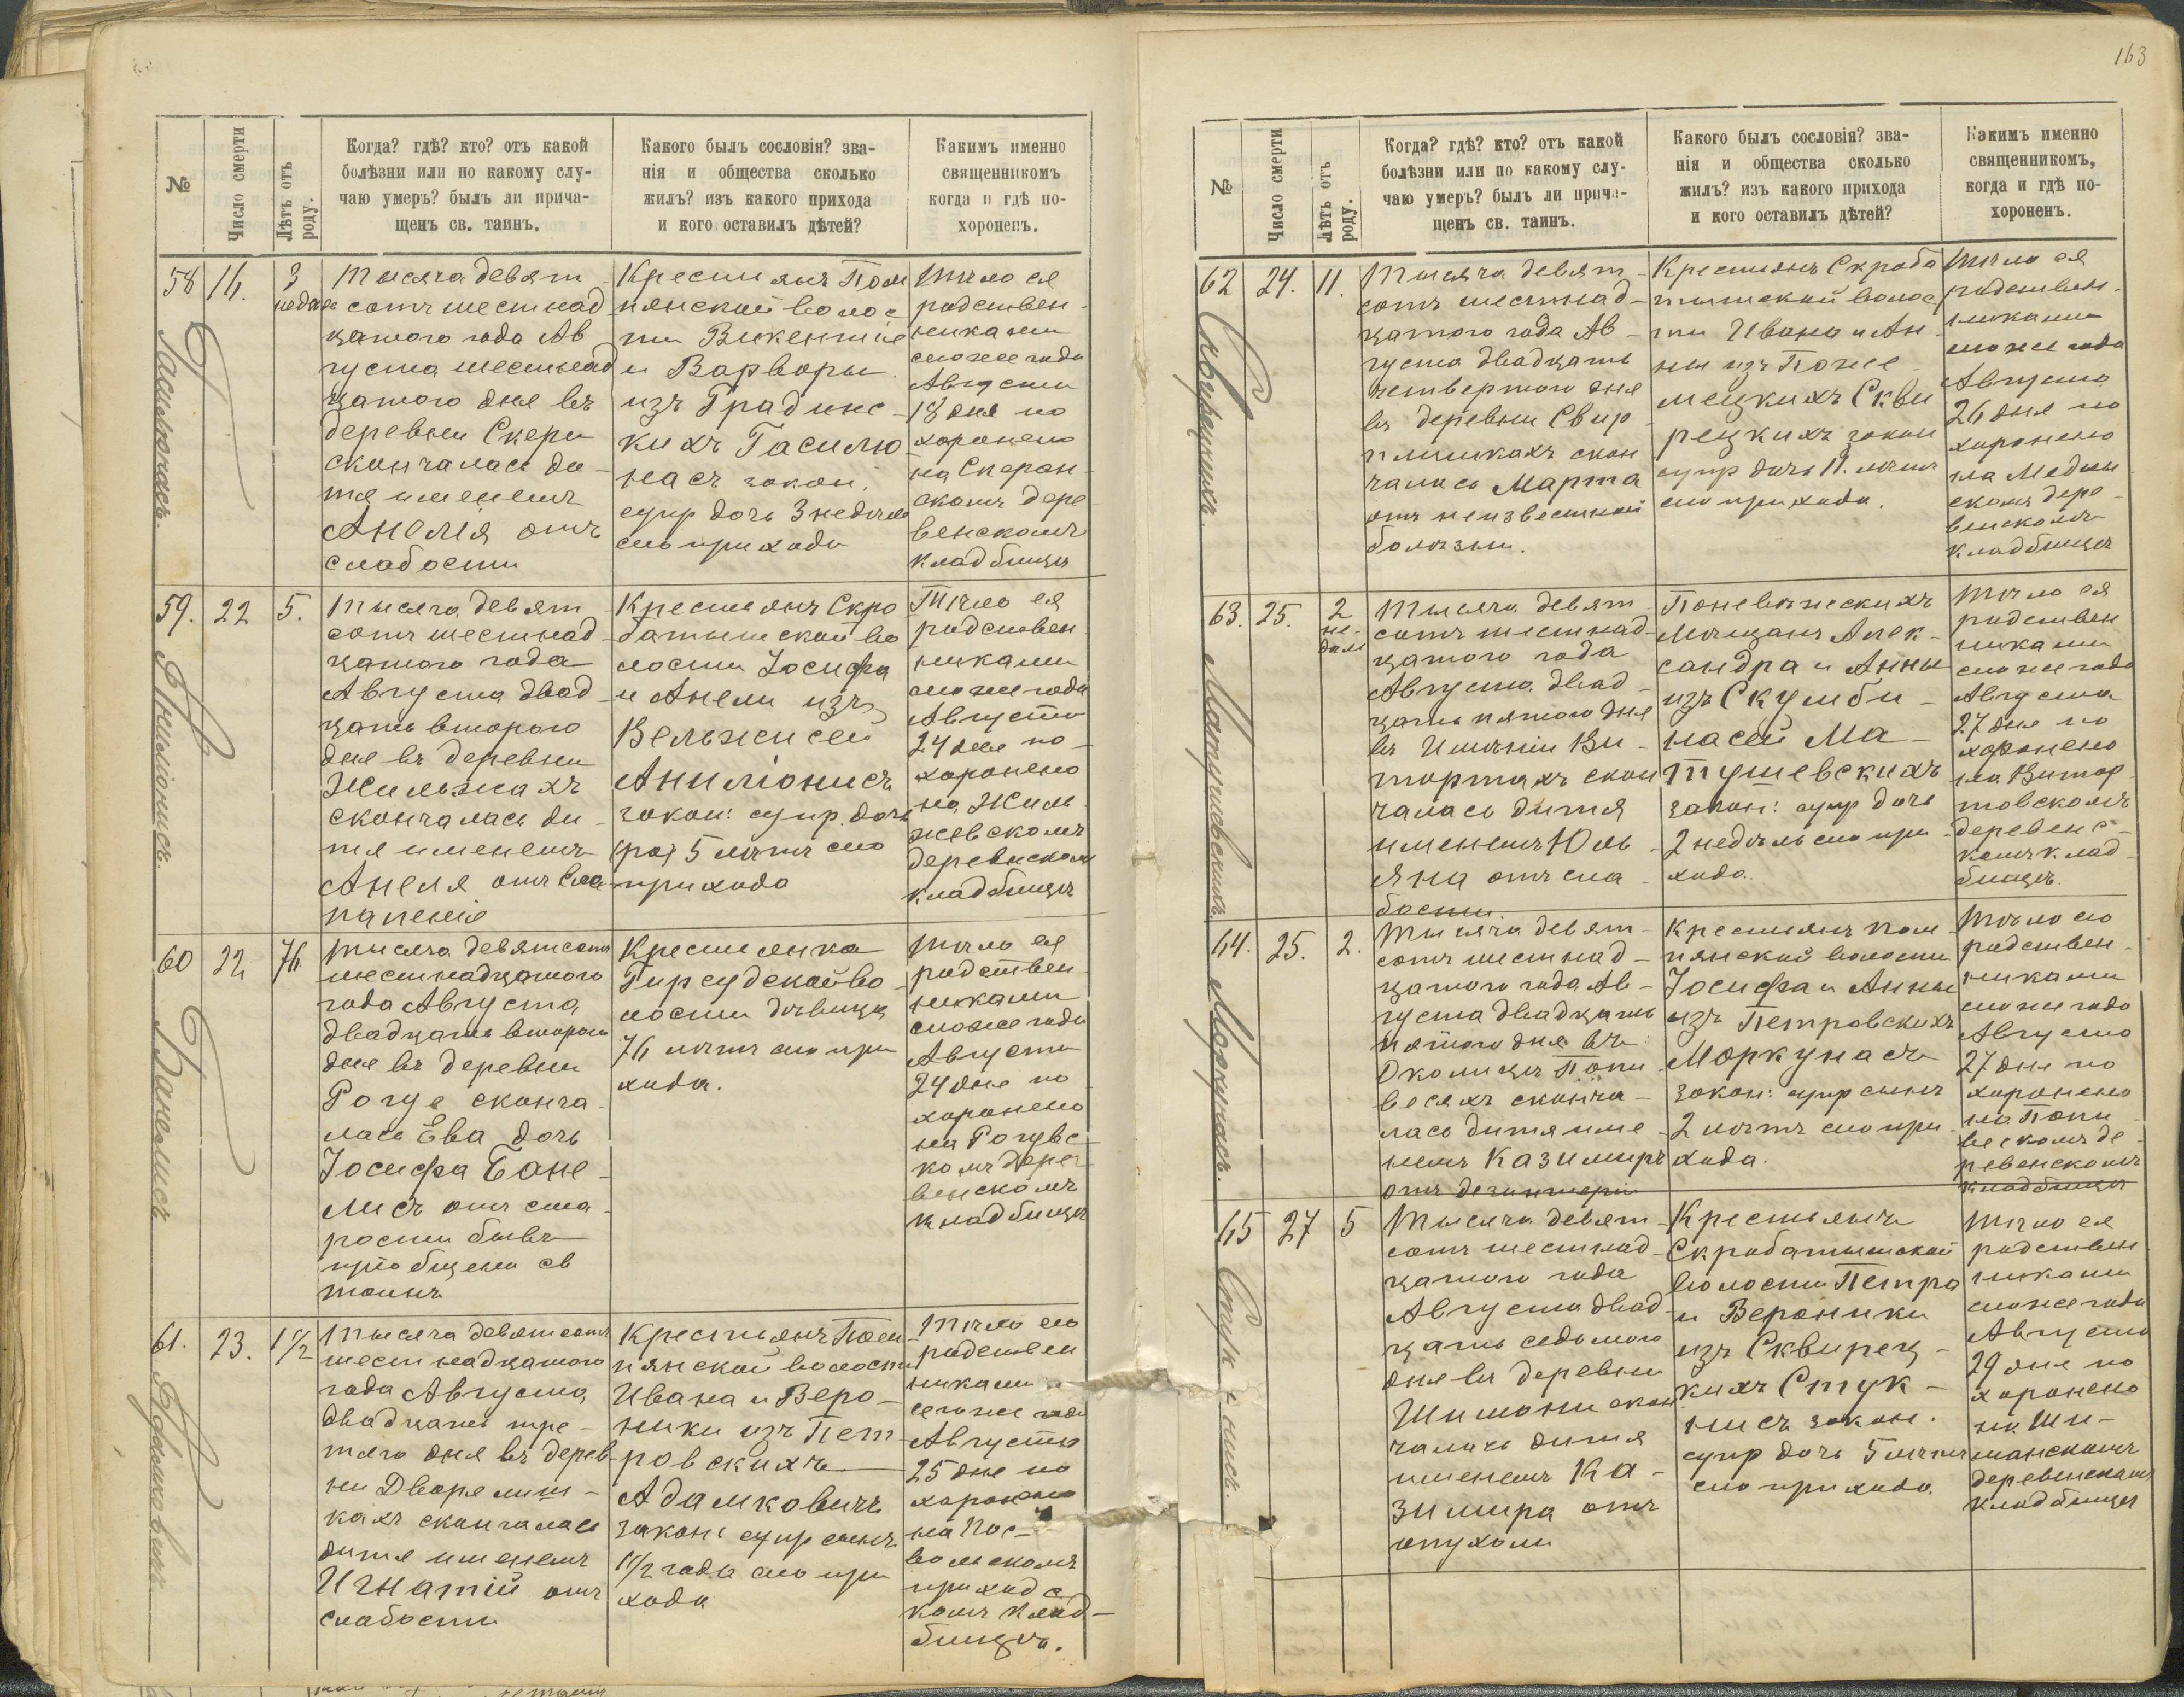 163
№
Число смерти
Лѣтъ отъ
роду.
Когда? гдѣ? кто? отъ какой
болѣзни или по какому слу-
чаю умеръ? былъ ли прича-
щенъ св. таинъ.
Какого былъ сословія? зва-
нія и общества сколько
жилъ? изъ какого прихода
и кого оставилъ дѣтей?
Какимъ именно
священникомъ
когда и гдѣ по-
хороненъ.
58
16.
3
недели
Гасилюнасъ
Тысяча девят
сотъ шестнад
цатого года Ав
густа шестнад
цатого дня въ
деревни Скери
скончалась ди-
тя именемъ
Анелія отъ
слабости
Крестьянъ Пом
пянской волос
ти Викентіе
и Варворы
изъ Градинс-
кихъ Гасилю-
насъ закон.
супр дочь 3 недели
сего прихода
Тѣло ея
родствен-
никами
сего же года
Августа
18 дня по
хоронено
на Скеран-
скомъ дере
венскомъ
кладбищѣ
59.
22
5.
Анилонисъ
Тысяча девят
сотъ шестнад-
цатого года
Августа двад-
цать второго
дня въ деревни
Жильжахъ
скончалась ди-
тя именемъ
Анеля отъ вса
паленія
Крестьянъ Скро
батышской во
лости Іосифа
и Анели изъ
Вельжисей
Анилюнисъ
закон: супр. дочь
5 лѣтъ сего
прихода
Тѣло ея
родствен-
никами
сего же года
Августа
24 дня по-
хоронено
на Жиль-
жевскомъ
деревнскомъ
кладбищѣ
60
22
76
Банелисъ
Тысяча девятсотъ
шестнадцатого
года Августа
двадцать второго
дня въ деревни
Рогуе сконча-
лась Ева дочь
Іосифа Бане-
лисъ отъ ста-
рости бывъ
пріобщена св
тоинъ
Крестьянка
Гирсудской во-
лости дѣвица
76 лѣтъ сего при
хода.
Тѣло ея
родствен-
никами
сего же года
Августа
24 дня по
хоронено
на Рогувс-
комъ дере-
венскомъ
кладбищѣ
61.
23.
1 1/2
Адамковичъ
Тысяча девятсотъ
шестнадцатого
года Августа
двадцать тре-
тяго дня въ дерев-
ни Дворелиш-
кахъ скончалась
дитя именемъ
Игнатій отъ
слабости
Крестьянъ Пом
пянской волости
Ивана и Веро-
ники изъ Пет-
ровскихъ
Адамковичъ
закон: супр сынъ
1 1/2 года сего при
хода
Тѣло его
родствен
никами
сего же года
Августа
25 дня по
хоронено
на Пос-
вольскомъ
приходс
комъ клад-
бищѣ.
№
Число смерти
Лѣтъ отъ
роду.
Когда? гдѣ? кто? отъ какой
болѣзни или по какому слу-
чаю умеръ? былъ ли прича-
щенъ св. таинъ.
Какого былъ сословія? зва-
нія и общества сколько
жилъ? изъ какого прихода
и кого оставилъ дѣтей?
Какимъ именно
священникомъ,
когда и гдѣ по-
хороненъ.
62
24.
11.
Тысяча девят-
сотъ шестнад-
цатого года Ав-
густа двадцать
четвертого дня
въ деревни Свир
плишкахъ скон
чалась Марта
отъ неизвестной
болѣзни.
Крестьянъ Скроба
тышской волос
ти Ивана и Ан-
ны изъ Поже
мецкихъ Скви
рецкихъ закон
супр дочь 11. лѣтъ
сего прихода.
Тѣло ея
родствен-
никами
сего же года
Августа
26 дня по
хоронено
на Медин
скомъ дере-
венскомъ
кладбищѣ
63.
25.
2
не-
дели
Матушевскихъ
Тысяча девят
сотъ шестнад-
цатого года
Августа двад-
цать пятого дня
въ Имѣніи Ви-
тортахъ скон
чалась дитя
именемъ Юль-
яна отъ сла-
бости.
Поневѣжескихъ
Мѣщанъ Алек-
сандра и Анны
изъ Скумби-
насей Ма-
тушевскихъ
закон: супр дочь
2 недѣль сего при-
хода.
Тѣло ея
родствен
никами
сего же года
Августа
27 дня по
хоронено
на Витор
товскомъ
деревенс-
комъ клад-
бищѣ.
64.
25.
2.
Моркунасъ
Тысяча девят-
сотъ шестнад-
цатого года Ав-
густа двадцать
пятого дня въ
Околицѣ Попи
весяхъ сконча-
лась дитя име-
немъ Казимиръ
отъ дезинтеріи
Крестьянъ пом-
пянской волости
Іосифа и Анны
изъ Петровскихъ
Моркунасъ
закон: супр сынъ
2 лѣтъ сего при
хода.
Тѣло его
родствен-
никами
сего же года
Августа
27 дня по
хоронено
на Попи-
вескомъ де-
ревенскомъ
кладбищѣ
65
27
5
Тысяча девят-
сотъ шестнад-
цатого года
Августа двад-
цать седьмого
дня въ деревни
Шимони скон
чалась дитя
именемъ Ка-
зимира отъ
опухоли
Крестьянъ
Скробатышской
волости Петра
и Вероники
изъ Сквирец-
кихъ Стук-
нисъ закон.
супр дочь 5 лѣтъ
сего прихода
Тѣло ея
родствен
никами
сего же года
Августа
29 дня по
хоронено
на Ши-
манскомъ
деревенскомъ
кладбищѣ